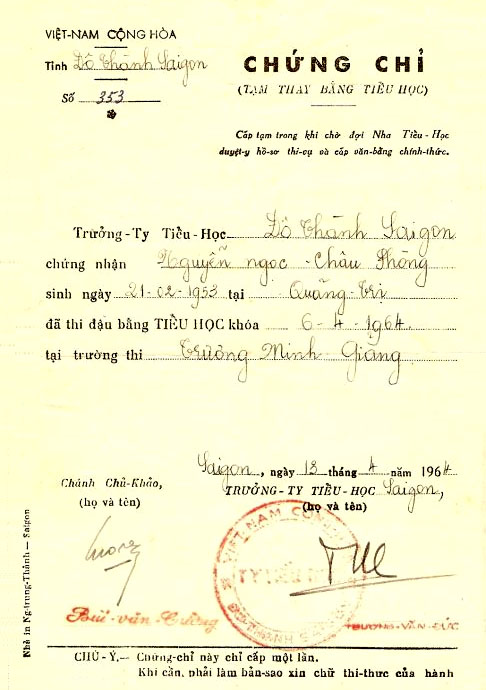 VIỆT-NAM CỘNG HÒA
Tỉnh Đô Thành Saigon
Số 353
CHỨNG CHỈ
(TẠM THAY BẰNG TIỂU HỌC)
Cấp tạm trong khi chờ đợi Nha Tiểu-Học
duyệt-y hồ-sơ thi-cụ và cấp văn-bằng chính-thức.
Trưởng-Ty Tiểu-Học Đô Thành Saigon
chứng nhận Nguyễn ngọc-Châu Phong
sinh ngày 21-02-1953 tại Quảng-Trị
đã thi đậu bằng TIỂU HỌC khóa 6-4-1964
tại trường thi Trương Minh Giảng
Saigon, ngày 13 tháng 4 năm 1964
Chánh Chủ-Khảo,
(họ và tên)
TRƯỞNG-TY TIỂU-HỌC Saigon,
(họ và tên)
VIỆT-NAM CỘNG
Bùi-văn-Cường
TRƯƠNG-VĂN-ĐỨC
CHÚ-Ý.— Chứng-chỉ này chỉ cấp một lần.
Khi cần, phải làm bản-sao xin chữ thi-thức của hành
Nhà in Ng-trung-Thành — Saigon